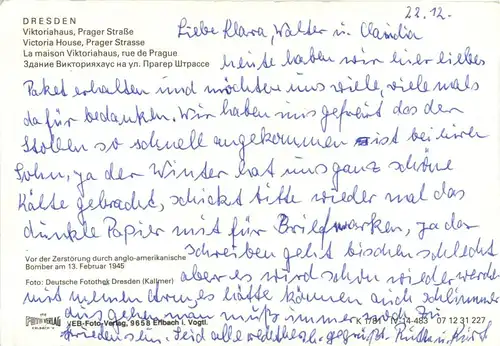 22.12.
DRESDEN
Viktoriahaus, Prager Straße
Victoria House, Prager Strasse
La maison Viktoriahaus, rue de Prague
Здание Викторияхаус на ул. Прагер Штрассе
Liebe Klara, Walter u. Claudia
heute haben wir hier liebes
Paket erhalten und möchten uns viele, vielemals
dafür bedanken. Wir haben uns gefreut das der
Stollen so schnell angekommen ist bei
Sohn, ja der Winter hat uns ganz schöne
Kälte gebracht, schickt bitte wieder mal das
dunkle Papier mit für Briefmarken, ja der
schreiben geht bischen schlecht
Vor der Zerstörung durch anglo-amerikanische
Bomber am 13. Februar 1945
aber es wird schon wieder werden
Foto: Deutsche Fotothek Dresden (Kallmer)
mit meinen hätte können auch schlimmer
PHOTO VERLAG
ERLBACH V.
VEB-Foto-Verlag, 9658 Erlbach i. Vogtl.
07 12 31 227
ausgehen man muß immer noch zu
frieden sein. Seid alle gegrüßt. Kurt